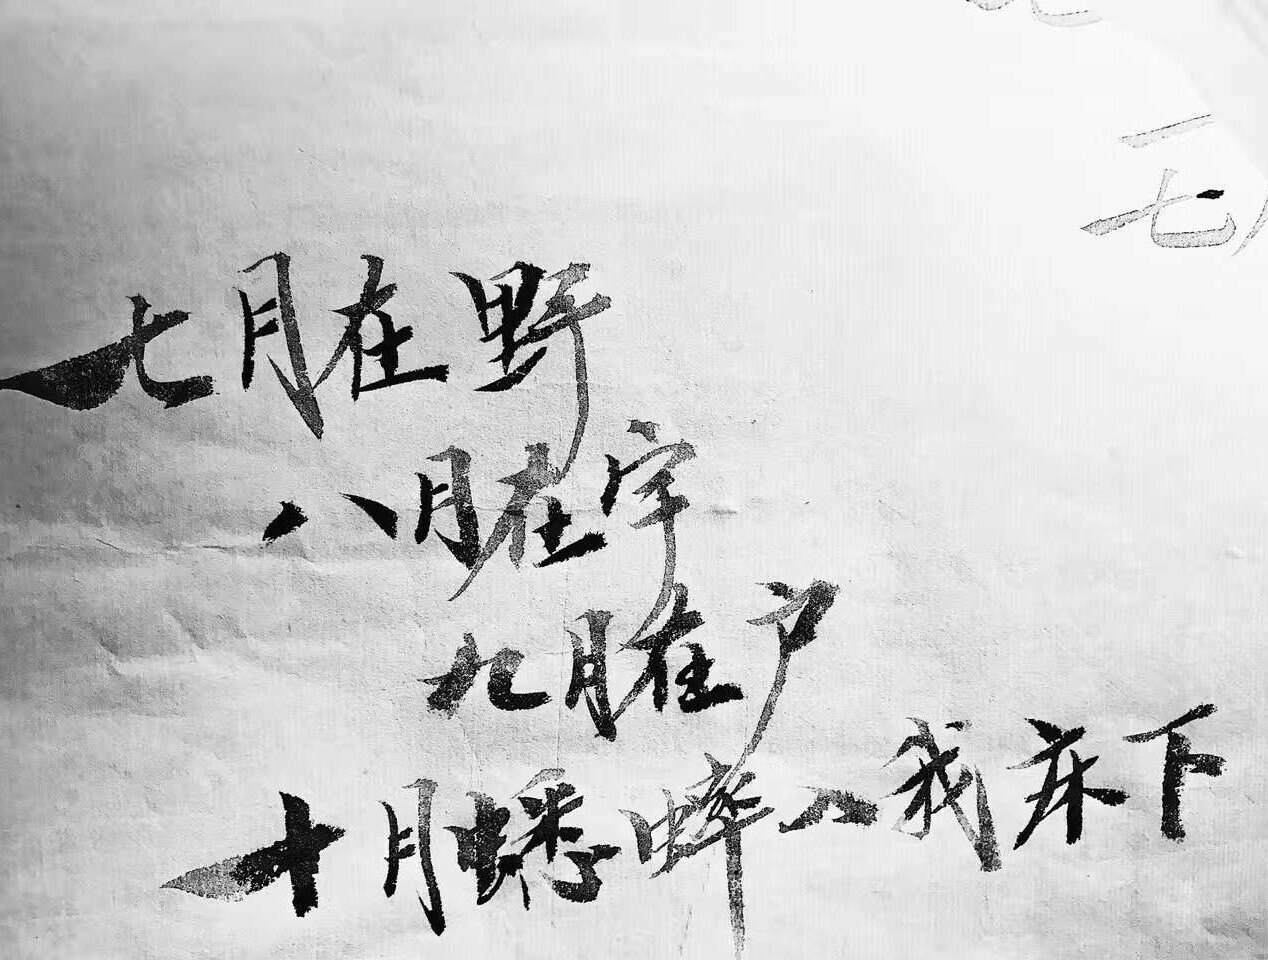 一
七
七月在野
八月在宇
九月在户
十月蟋蟀入我床下